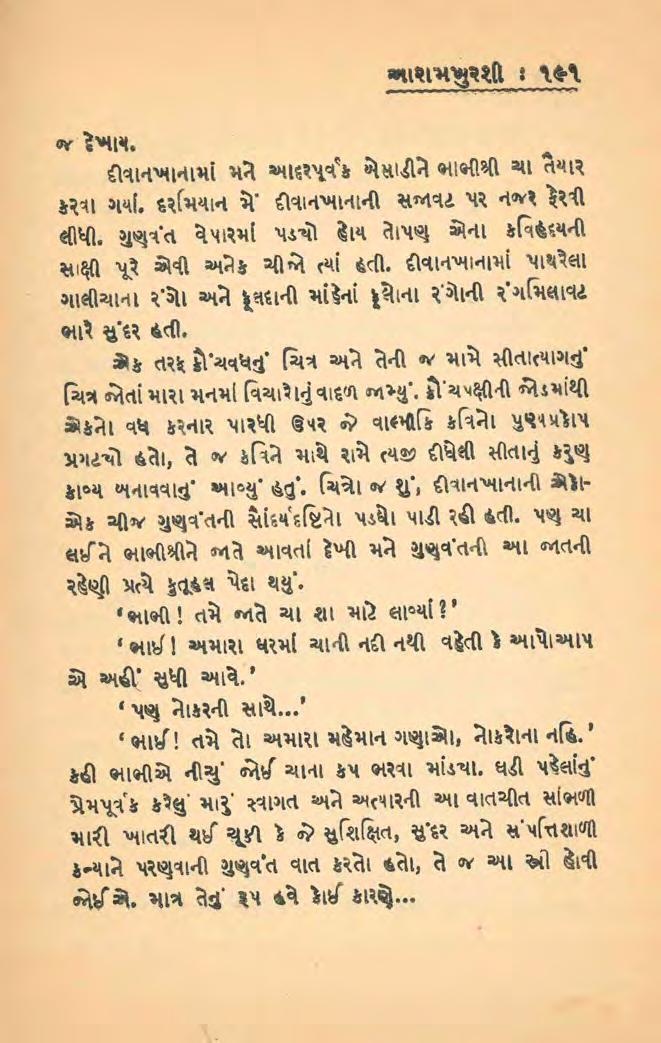 આરામખુરશી : ૧૯૧
જ દેખાય.
દીવાનખાનામાં મને આદરપૂર્વક બેસાડીને ભાભીશ્રી ચા તૈયાર
કરવા ગયાં. દરમિયાન મેં દીવાનખાનાની સજાવટ પર નજર ફેરવી
લીધી. ગુણવંત વેપારમાં પડચો હોય તોપણ એના કવિહૃદયની
સાક્ષી પૂરે એવી અનેક ચીજો ત્યાં હતી. દીવાનખાનામાં પાથરેલા
ગાલીચાના રંગો અને ફૂલદાની માંહેનાં ફૂલોના રંગોની રંગમિલાવટ
ભારે સુંદર હતી.
એક તરફ ક્રૌંચવધનું ચિત્ર અને તેની જ સામે સીતાત્યાગનું
ચિત્ર જોતાં મારા મનમાં વિચારોનું વાદળ જામ્યું. ક્રૌંચપક્ષીની જોડમાંથી
એકનો વધ કરનાર પારધી ઉપર જે વાલ્મીકિ કવિનો પુણ્યપ્રકોપ
પ્રગટચો હતો, તે જ કવિને માથે રામે ત્યજી દીધેલી સીતાનું કરુણ
કાવ્ય બનાવવાનું આવ્યું હતું. ચિત્રો જ શું, દીવાનખાનાની એકે-
એક ચીજ ગુણવંતની સૌંદર્યદૃષ્ટિનો પડઘો પાડી રહી હતી. પણ ચા
લઈને ભાભીશ્રીને જાતે આવતાં દેખી મને ગુણવંતની આ જાતની
રહેણી પ્રત્યે કુતૂહલ પેદા થયું.
‘ભાભી! તમે જાતે ચા શા માટે લાવ્યાં?’
‘ભાઈ! અમારા ઘરમાં ચાની નદી નથી વહેતી કે આપોઆપ
એ અહીં સુધી આવે.’
‘પણ નોકરની સાથે...’
‘ભાઈ! તમે તો અમારા મહેમાન ગણાઓ, નોકરોના નહિ.’
કહી ભાભીએ નીચું જોઈ ચાના કપ ભરવા માંડયા. ઘડી પહેલાંનું
પ્રેમપૂર્વક કરેલું મારું સ્વાગત અને અત્યારની આ વાતચીત સાંભળી
મારી ખાતરી થઈ ચૂકી કે જે સુશિક્ષિત, સુંદર અને સંપત્તિશાળી
કન્યાને પરણવાની ગુણવંત વાત કરતો હતો, તે જ આ સ્ત્રી હોવી
જોઈએ. માત્ર તેનું રૂપ હવે કોઈ કારણે...